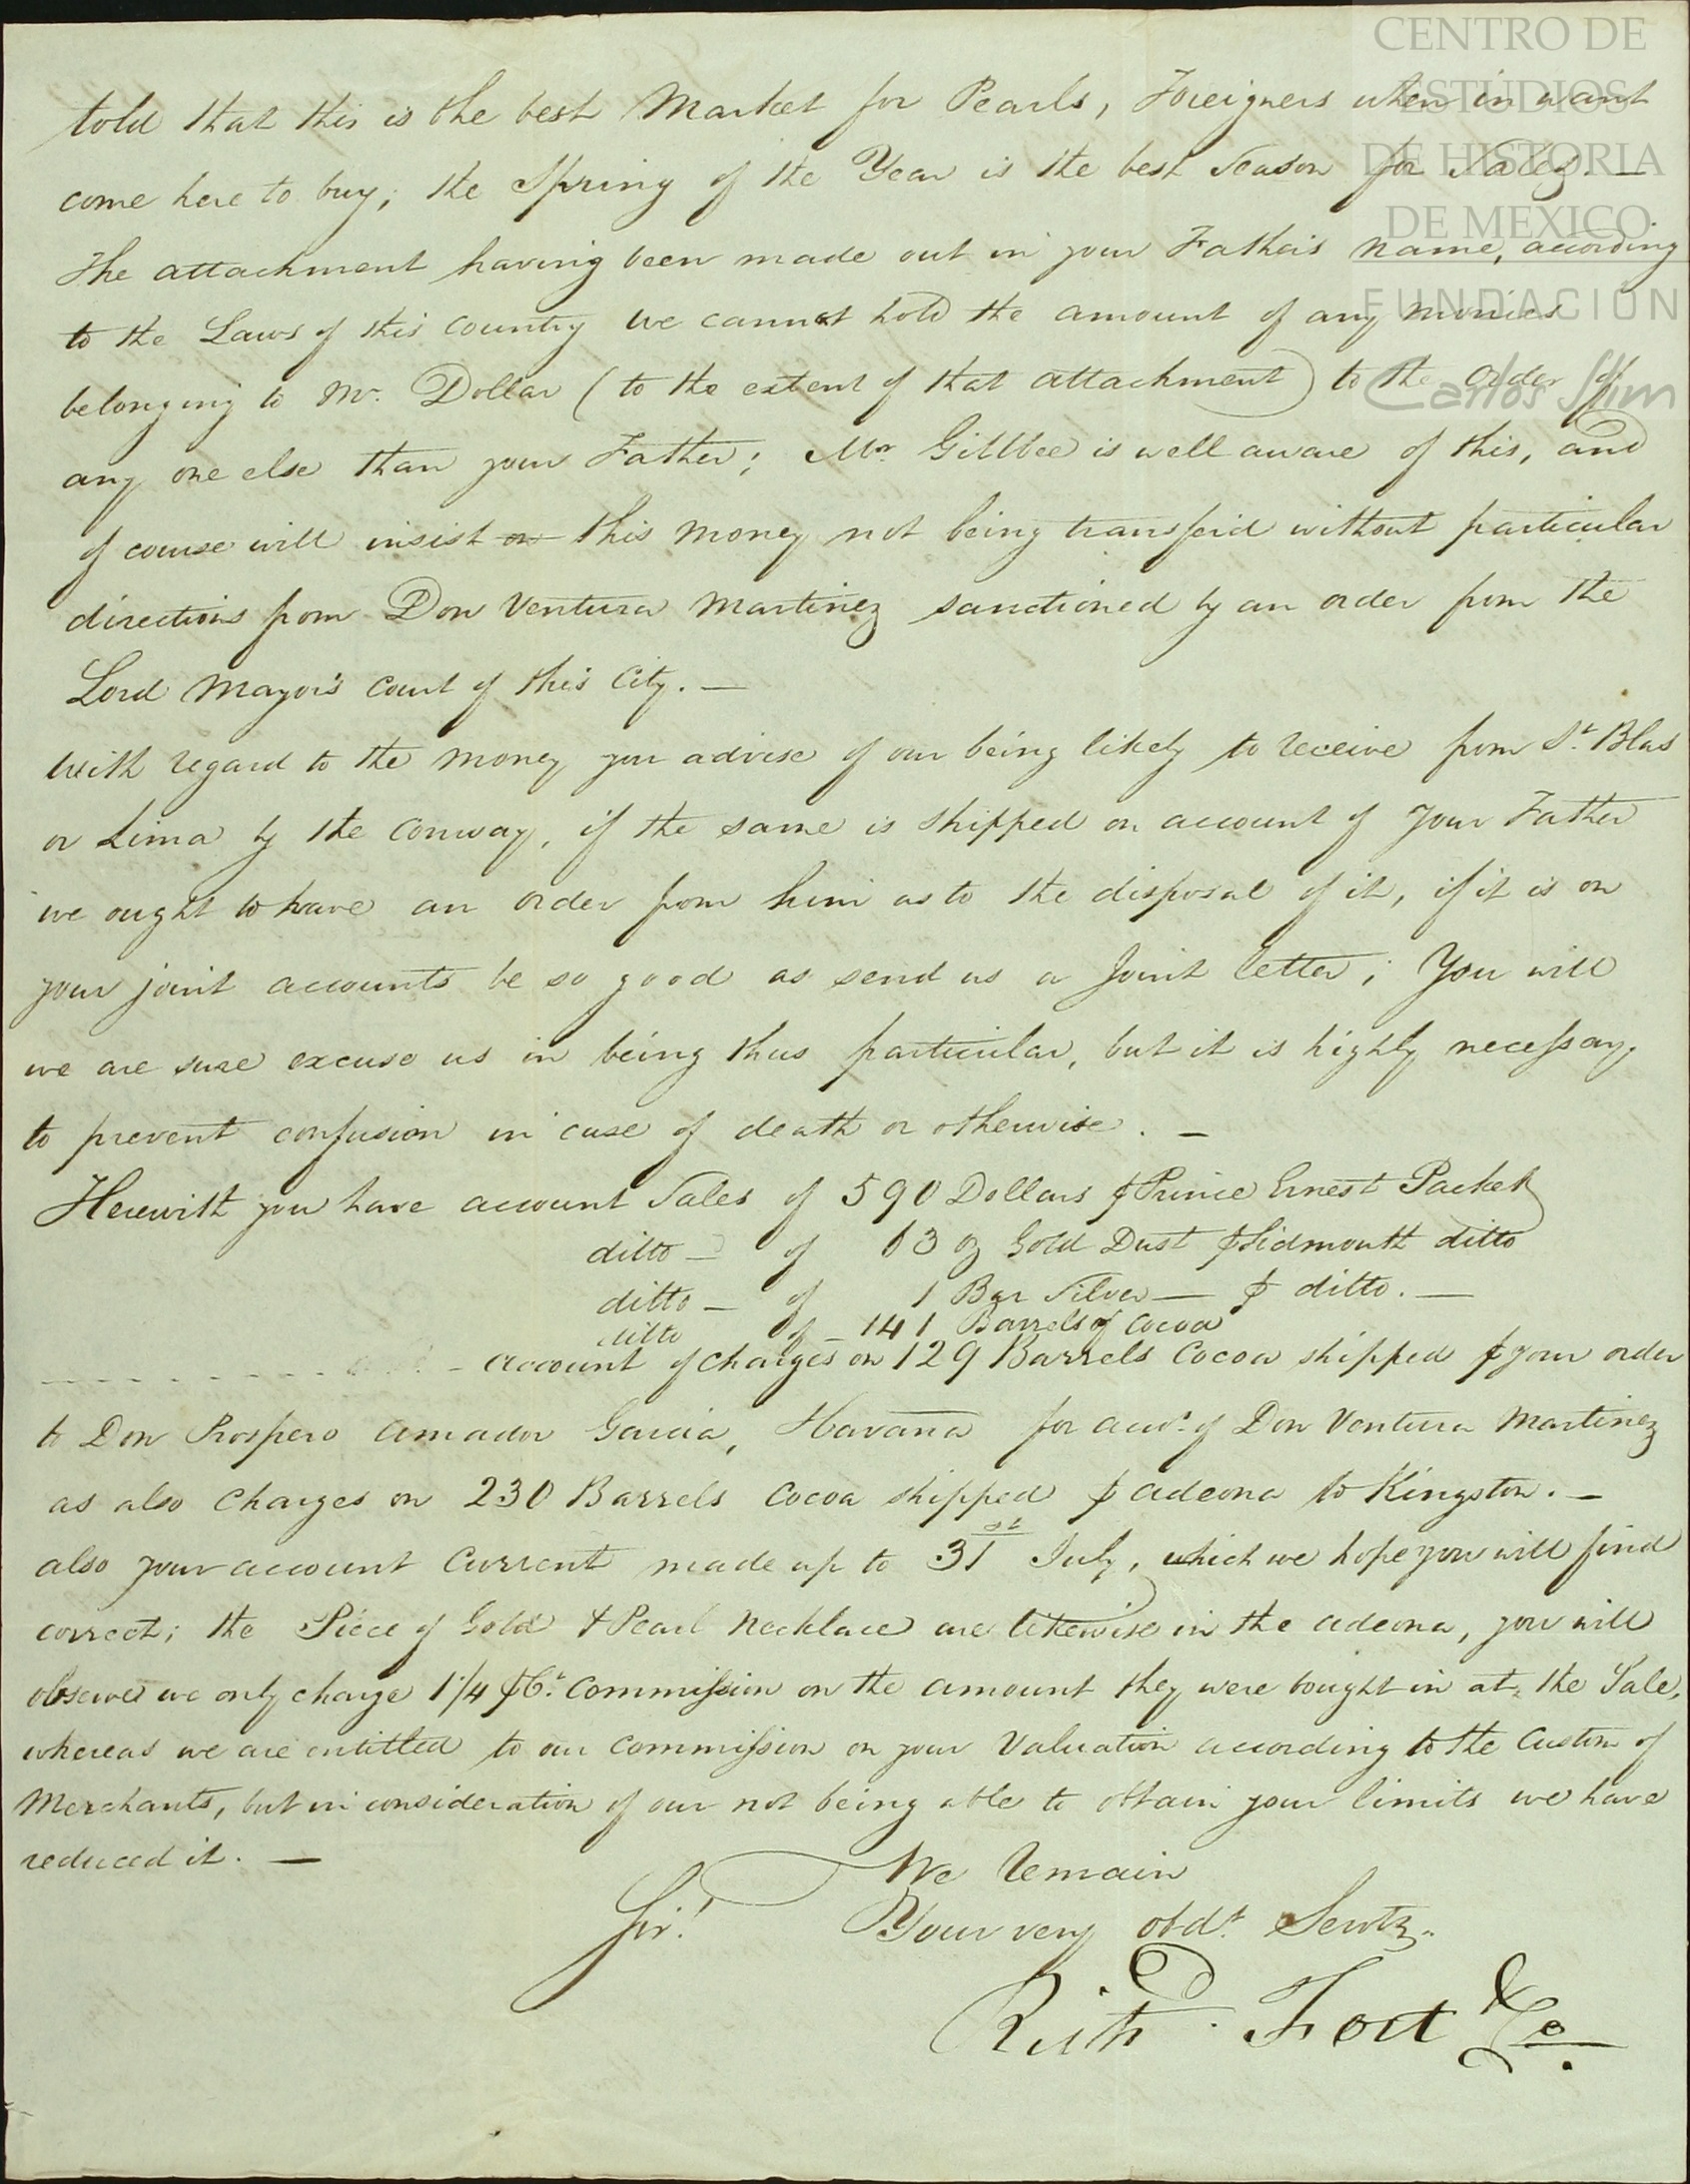 CENTRO DE
ESTUDIOS
DE HISTORIA
DE MEXICO
FUNDACION
Carlos Slim
told that this is the best Market for Pearls, Foreigners when in want
come here to buy; the Spring of the Year is the best Season for Sales. —
The attachment having been made out in your Father's name, according
to the Laws of this Country we cannot hold the amount of any monies
belonging to Mr. Dollar (to the extent of that attachment) to the order of
any one else than your Father; Mr Gillbee is well aware of this, and
of course will insist on this money not being transferd without particular
directions from Don Ventura Martinez sanctioned by an order from the
Lord Mayor's Court of this City. —
With regard to the money you advise of our being likely to receive from St. Blas
or Lima by the Conway, if the same is shipped on account of your Father
we ought to have an order from him as to the disposal of it, if it is on
your joint accounts be so good as send us a Joint letter; You will
we are sure excuse us in being thus particular, but it is highly necessary
to prevent confusion in case of death or otherwise. —
Herewith you have account Sales of 590 Dollars ⅌ Prince Ernest Packet
ditto — of 63 oz Gold Dust ⅌ Sidmouth ditto
ditto — of 1 Bar Silver — ⅌ ditto. —
ditto of — 141 Barrels of Cocoa
account of charges on 129 Barrels Cocoa shipped ⅌ your order
to Don Prospero Amador Garcia, Havana for acct. of Don Ventura Martinez
as also Charges on 230 Barrels Cocoa shipped ⅌ Adeona to Kingston. —
also your account Current made up to 31st July, which we hope you will find
correct; the Piece of Gold & Pearl Necklace are likewise in the Adeona, you will
observe we only charge 1 1/4 ⅌Ct. Commission on the amount they were bought in at the Sale,
whereas we are entitled to our Commission on your Valuation according to the Custom of
Merchants, but in consideration of our not being able to obtain your limits we have
reduced it. —
We remain
Sir! Your very obdt. Servts.
Richd. Fort & Co.